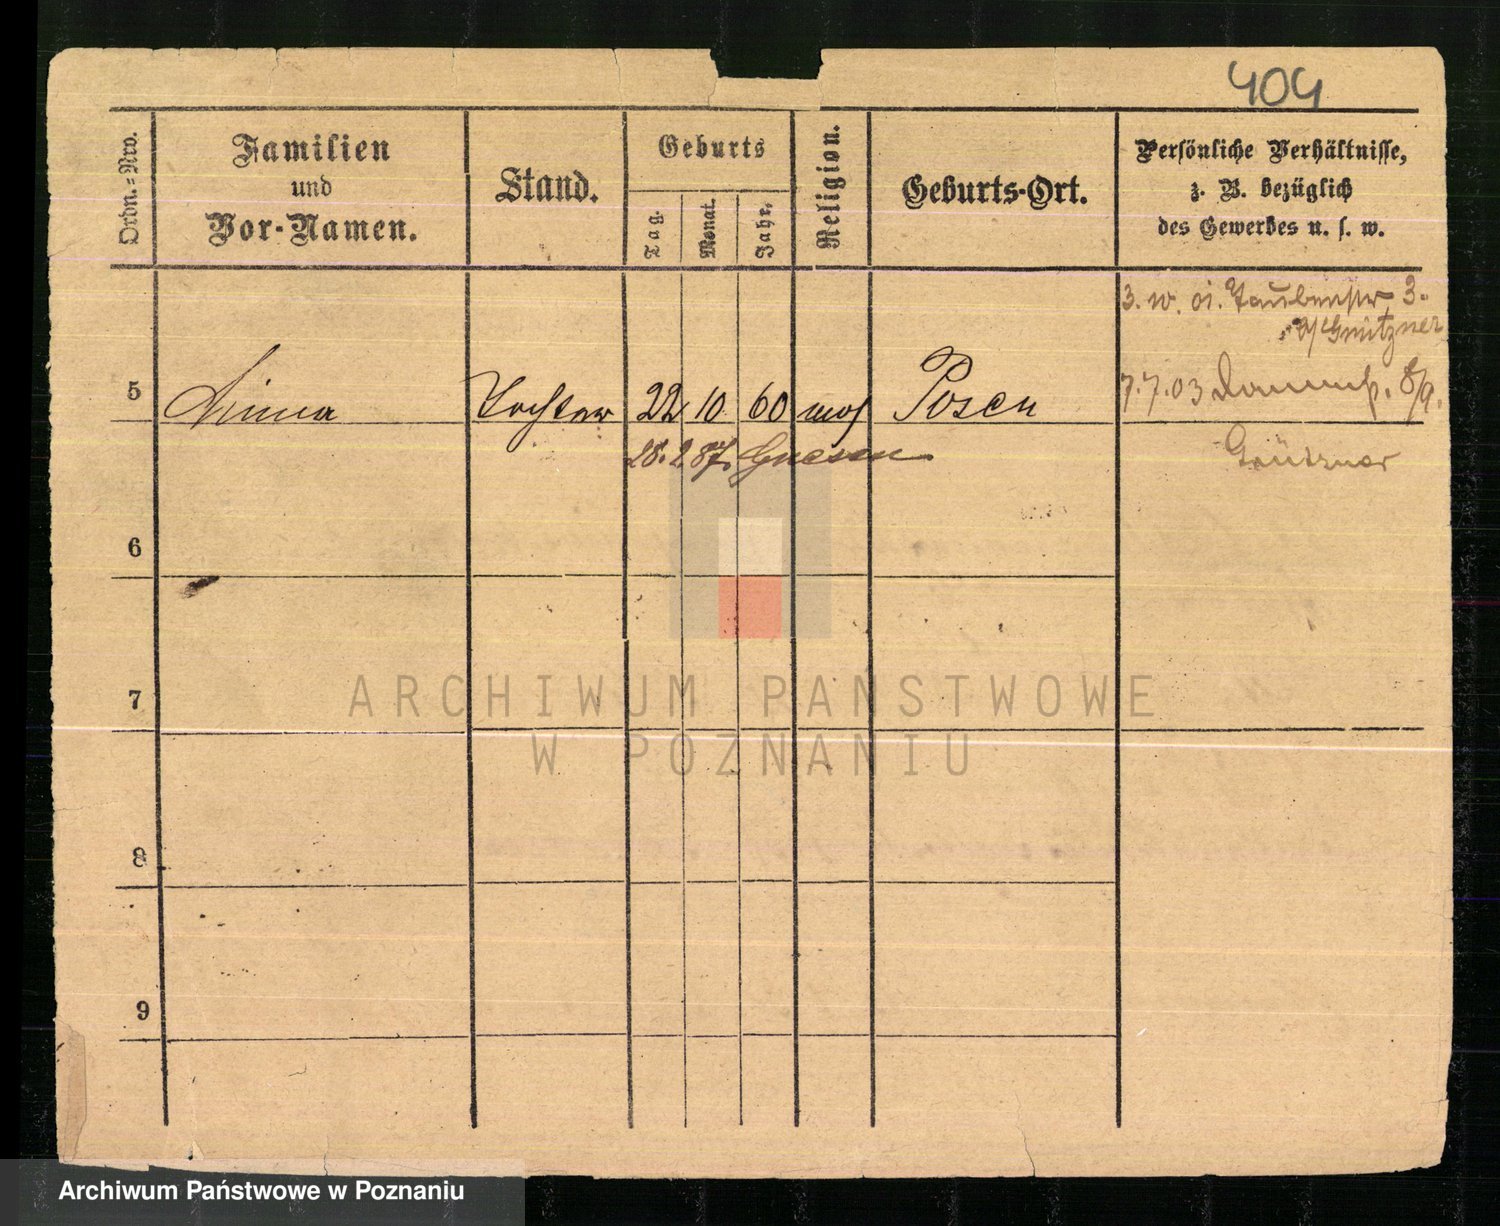 404
Ordn.-Nro.
Familien
und
Vor-Namen.
Stand.
Geburts
Tag.
Monat.
Jahr.
Religion.
Geburts-Ort.
Persönliche Verhältnisse,
z. B. bezüglich
des Gewerbes u. s. w.
3. 10. 01. Taubenstr 3.
5
Tochter
22
10
60
mos
Posen
7.7.03
28. 2 87. Gnesen
Grützner
6
7
8
9
ARCHIWUM PAŃSTWOWE
W POZNANIU
Archiwum Państwowe w Poznaniu